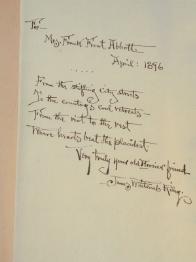 To
Mrs. Frank Trent Abbott
April: 1896
From the stifling city streets
To the country's cool retreats
From the riot to the rest
Where hearts beat the placidest
Very truly your old Hoosier friend
James Whitcomb Riley.